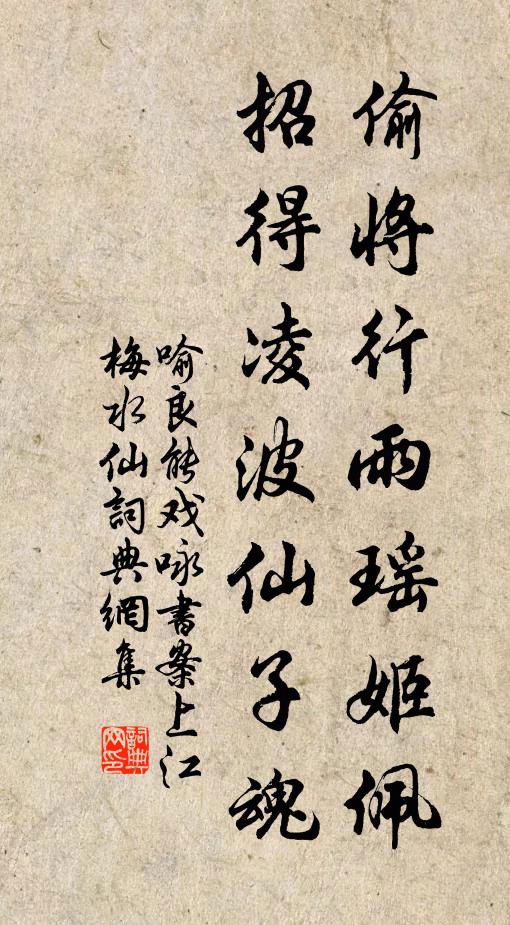 偷将行雨瑶姬佩
招得凌波仙子魂
喻良能戏咏書案上江
梅水仙詞典網集
詞典网印